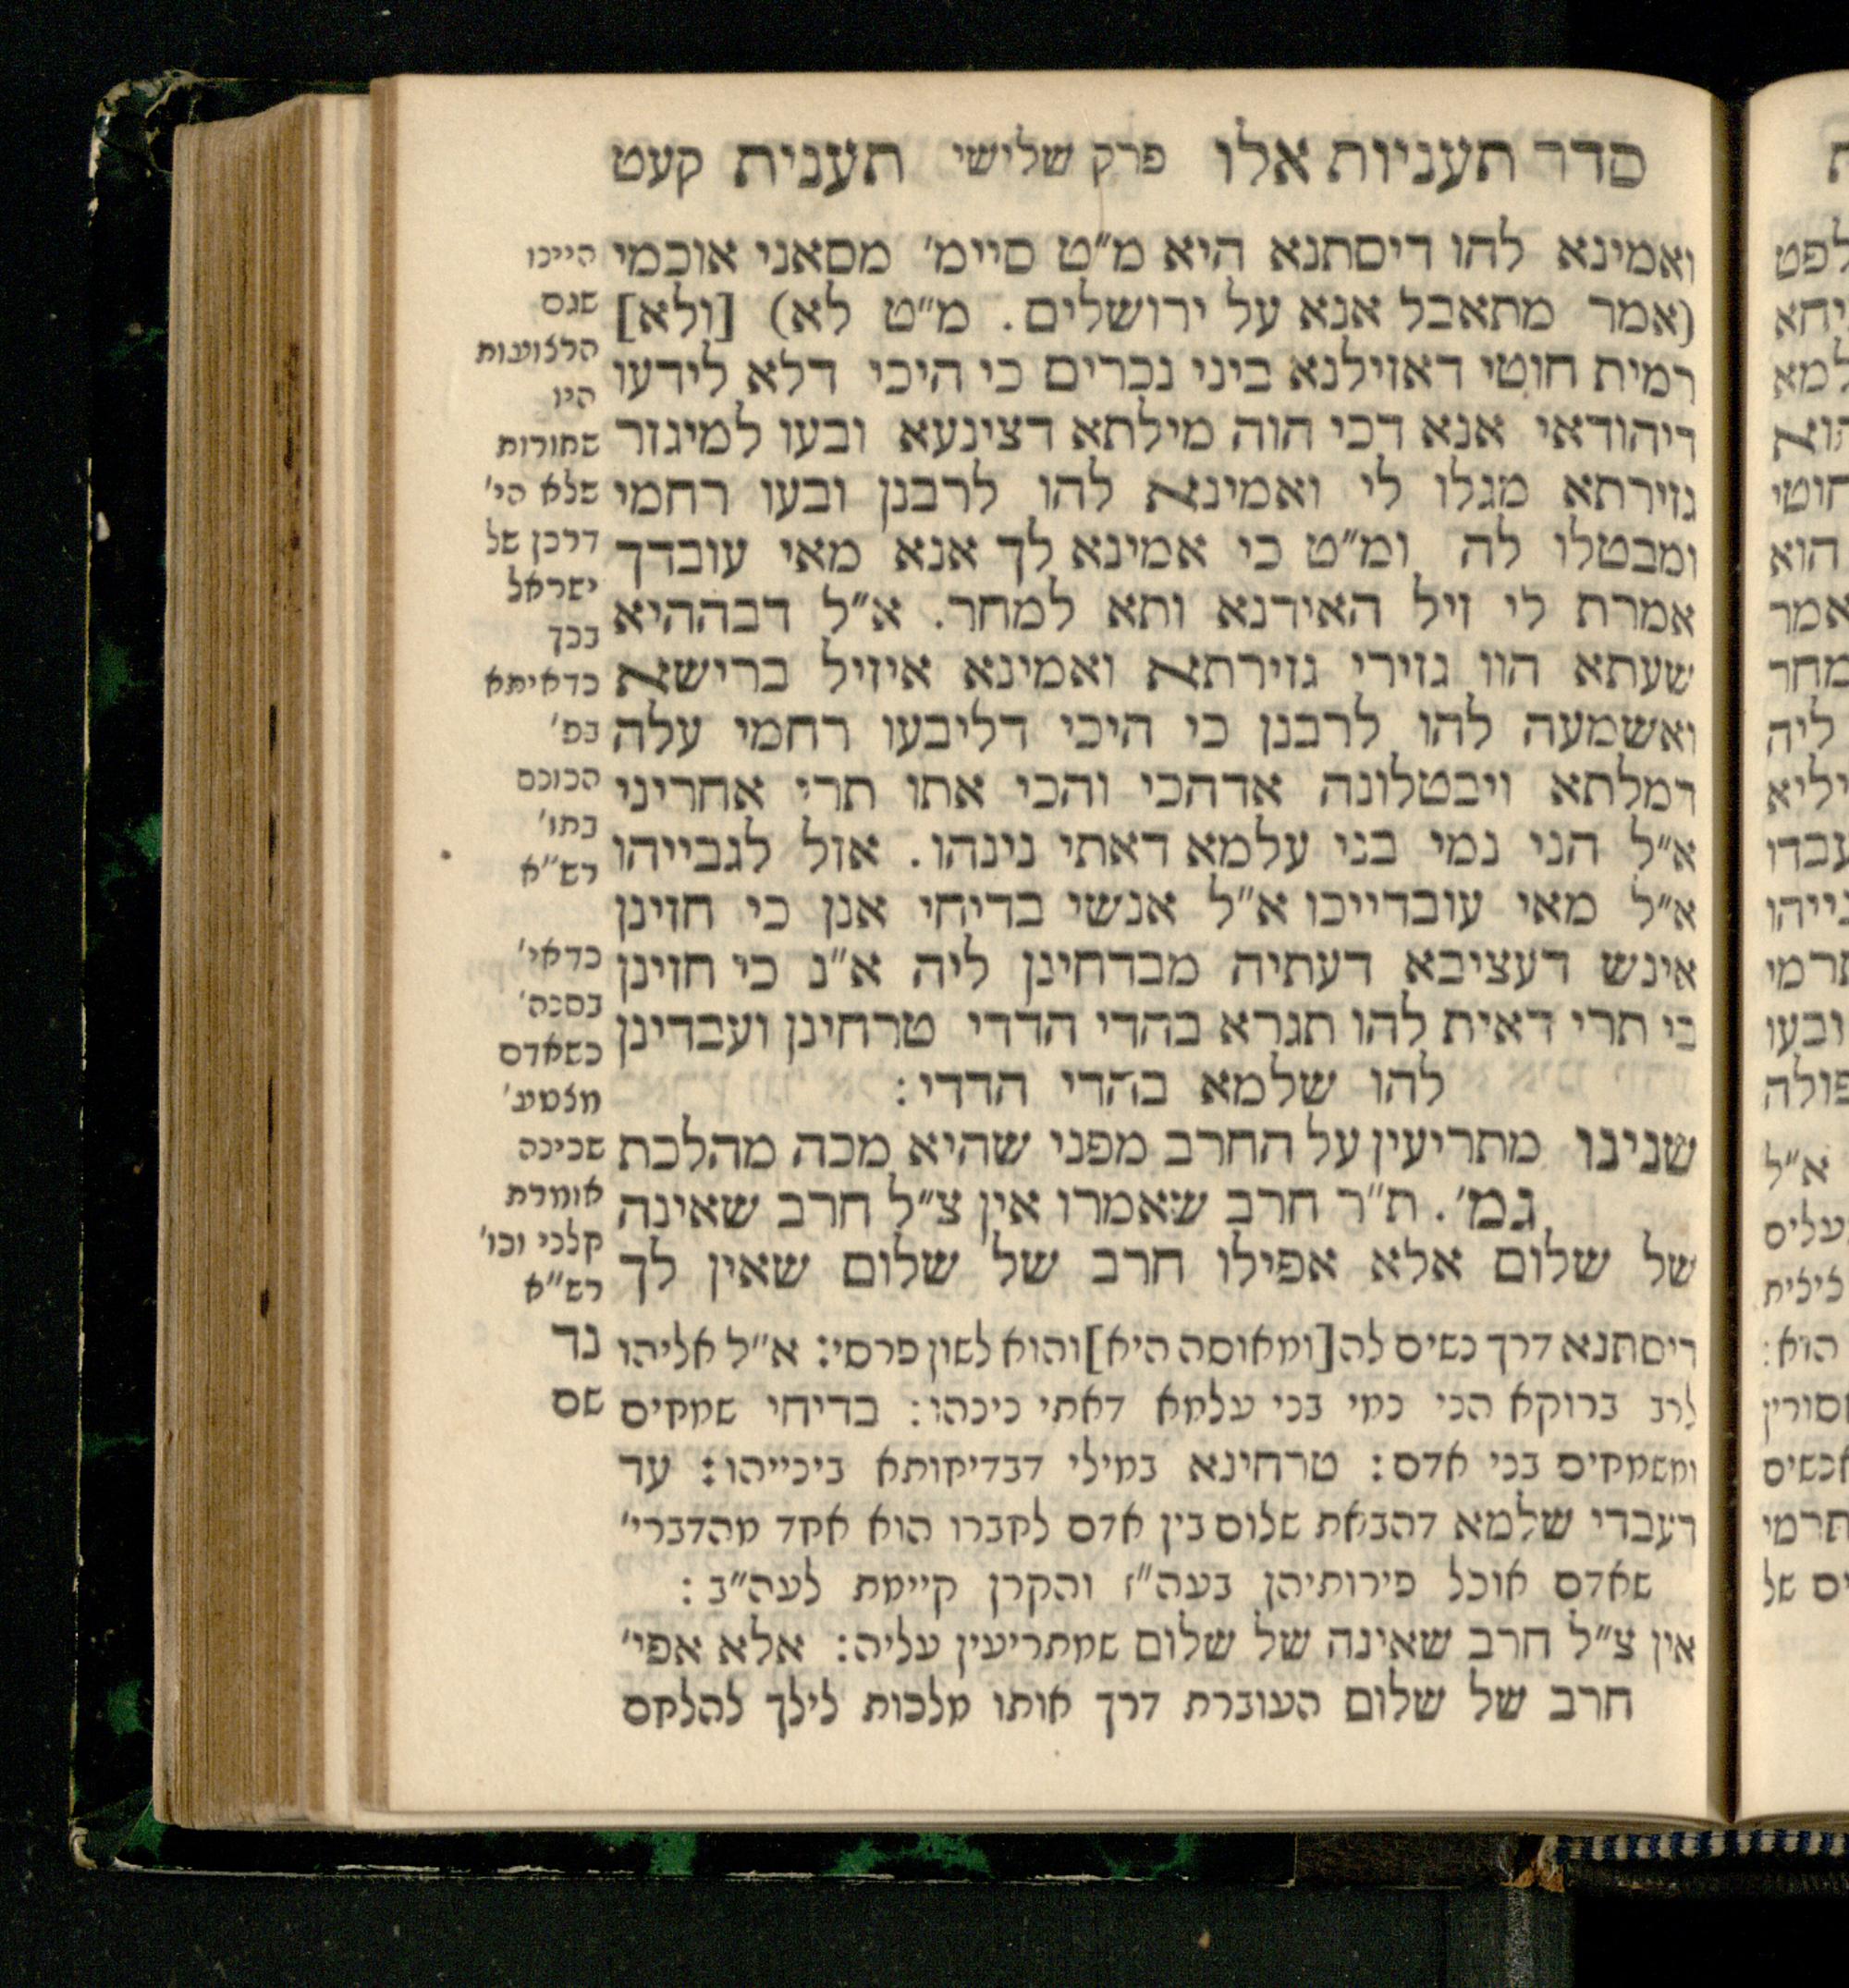 סדר תעניות אלו פרק שלישי תענית קעט
ואמינא להו דיסתנא היא מ״ט סיימ׳ מסאני אוכמי
(אמר מתאבל אנא על ירושלים. מ״ט לא) [ולא]
רמית חוטי דאזילנא ביני נכרים כי היכי דלא לידעו
דיהודאי אנא דכי הוה מילתא דצינעא ובעו למיגזר
גזירתא מגלו לי ואמינא להו לרבנן ובעו רחמי
ומבטלו לה ומ״ט כי אמינא לך אנא מאי עובדך
אמרת לי זיל האידנא ותא למחר. א״ל דבההיא
שעתא הוו גזירי גזירתא ואמינא איזיל ברישא
ואשמעה להו לרבנן כי היכי דליבעו רחמי עלה
דמלתא ויבטלונה אדהכי והכי אתו תרי אחריני
א״ל הני נמי בני עלמא דאתי נינהו. אזל לגבייהו
א״ל מאי עובדייכו א״ל אנשי בדיחי אנן כי חזינן
אינש דעציבא דעתיה מבדחינן ליה א״נ כי חזינן
בי תרי דאית להו תגרא בהדי הדדי טרחינן ועבדינן
להו שלמא בהדי הדדי:
שנינו מתריעין על החרב מפני שהיא מכה מהלכת
גמ׳. ת״ר חרב שאמרו אין צ״ל חרב שאינה
של שלום אלא אפילו חרב של שלום שאין לך
דיסתנא דרך נשים לה [ומאוסה היא] והוא לשון פרסי: א״ל אליהו
לרב ברוקא הני נמי בני עלמא דאתי נינהו: בדיחי שמחים
ומשמחים בני אדם: טרחינא במילי דבדיחותא בינייהו: עד
דעבדי שלמא דהבאת שלום בין אדם לחברו הוא אחד מהדברי׳
שאדם אוכל פירותיהן בעה״ז והקרן קיימת לעה״ב:
אין צ״ל חרב שאינה של שלום שמתריעין עליה: אלא אפי׳
חרב של שלום העוברת דרך אותו מלכות לילך להלחם
היינו
שגם
הרצועות
היו
שחורות
שלא הי׳
דרכן של
ישראל
בכך
כדאיתא
בפ׳
הכונס
בתו׳
רש״א
כדאי׳
בסנה׳
כשאדם
מצטע׳
שכינה
אומרת
קלני וכו׳
רש״א
נד
שם
לפט
יחא
למא
הוא
חוטי
הוא
אמר
מחר
ליה
יליא
עבדו
בייהו
תרמי
ובעו
פולה
א״ל
נעלים
ציצית
הוא:
אסורין
אנשים
תרמי
ים של